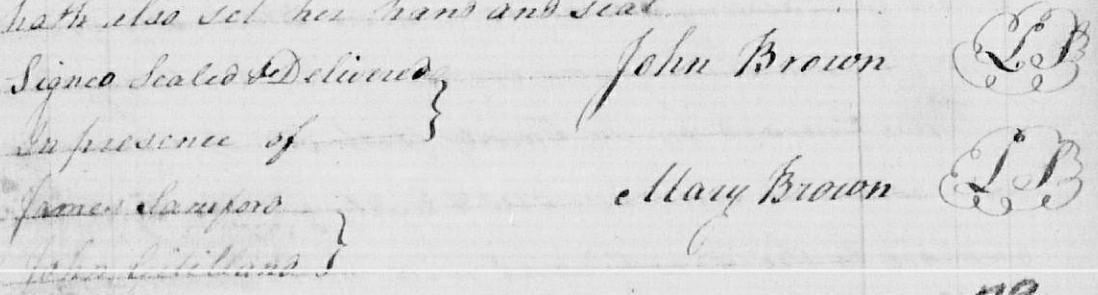 hath also set her hand and seal
Signed Sealed & Delivered John Brown LS
in presence of
James Sanford Mary Brown LS
John